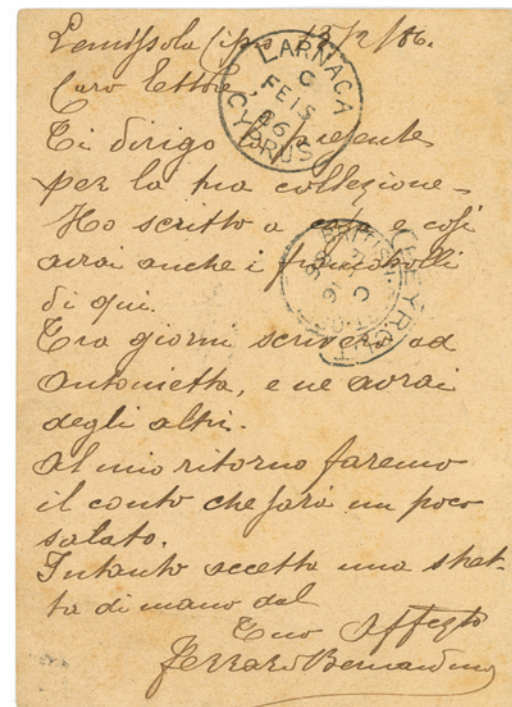 Lemissola Cipro 13/2/86.
Caro Ettore,
LARNACA
C
FE 15
86
CYPRUS
Ti dirigo la presente
per la tua collezione –
Ho scritto a casa e così
avrai anche i francobolli
di qui.
BRITISH
BEYROUT
Tra giorni scriverò ad
Antonietta, e ne avrai
degli altri.
Al mio ritorno faremo
il conto che sarà un poco
salato.
Intanto accetta una stret-
ta di mano dal
Tuo Affezto
Ferraro Bernardino